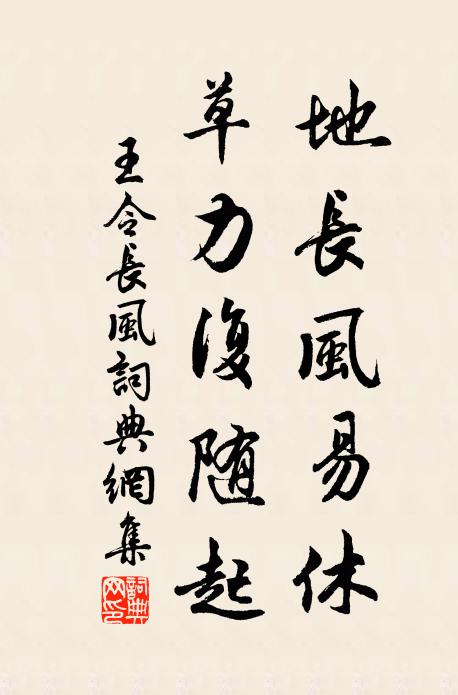 地長風易休
草力復随起
王令長風詞典網集
詞典網印